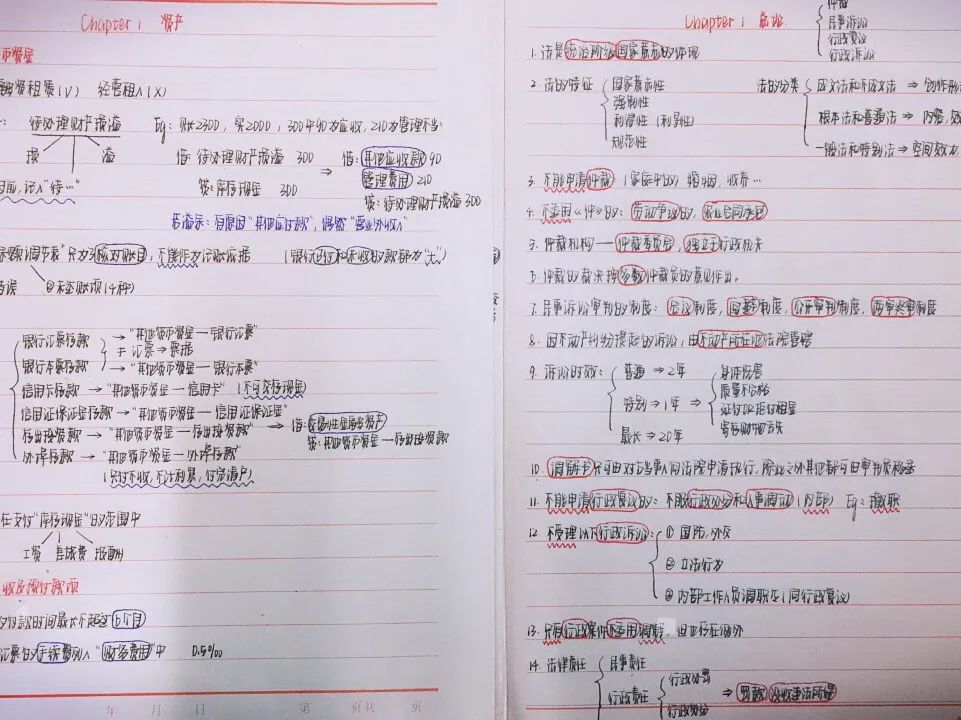 Chapter 1 资产
币资金
融资租赁(√) 经营租入(×)
待处理财产损溢
Eg: 账2300, 实2000, 300中90为应收, 210为管理不当
损 溢
借: 待处理财产损溢 300
贷: 库存现金 300
⇒
借: 其他应收款 90
管理费用 210
贷: 待处理财产损溢 300
目前, 记入"待…"
若溢余: 有原因"其他应付款", 偶然"营业外收入"
额调节表"只为了核对账目, 不能作为记账依据
②未达账项(4种)
银行汇票存款 → "其他货币资金—银行汇票"
≠ 汇票→票据
银行本票存款 → "其他货币资金—银行本票"
信用卡存款 → "其他货币资金—信用卡" (不可支存现金)
信用证保证金存款→"其他货币资金—信用证保证金"
存出投资款 → "其他货币资金—存出投资款" ⇒ 借: 交易性金融资产
贷: 其他货币资金—存出投资款
外埠存款 → "其他货币资金—外埠存款"
(只付不收, 不计利息, 付完清户)
在支付"库存现金"的范围中
工资 差旅费 报酬
收及预付款项
付款时间最长不超过6个月
汇票的手续费列入"财务费用"中 0.5‰
年 月 日 第 页共 页
Chapter 1 总论
仲裁
民事诉讼
行政复议
行政诉讼
1. 法是统治阶级国家意志的体现
2. 法的特征
国家意志性
强制性
利导性 (利导性)
规范性
法的分类
成文法和不成文法 ⇒ 创作形
根本法和普通法 ⇒ 内容, 效
一般法和特别法 ⇒ 空间效力
3. 不能申请仲裁: (家庭中的) 婚姻, 收养…
4. 不适用《仲》的: 劳动争议的, 农业合同承包
5. 仲裁机构——仲裁委员会, 独立于行政机关
6. 仲裁的裁决按多数仲裁员的意见作出。
7. 民事诉讼审判的制度: 合议制度, 回避制度, 公开审判制度, 两审终审制度
8. 因不动产纠纷提起的诉讼, 由不动产所在地法院管辖
9. 诉讼时效:
普通 ⇒ 2年
特别 ⇒ 1年 ⇒
身体伤害
质量不合格
延付或拒付租金
寄存财物丢失
最长 ⇒ 20年
10. 调解书
11. 不能申请行政复议的: 不服行政处分和人事调动 (内部) Eg: 撤职
12. 不受理以下行政诉讼:
① 国防, 外交
② 立法行为
内部工作人员调职任 (同行政复议)
13.
14. 法律责任
民事责任
行政责任
行政处罚 ⇒ 罚款 没收违法所得
行政处分